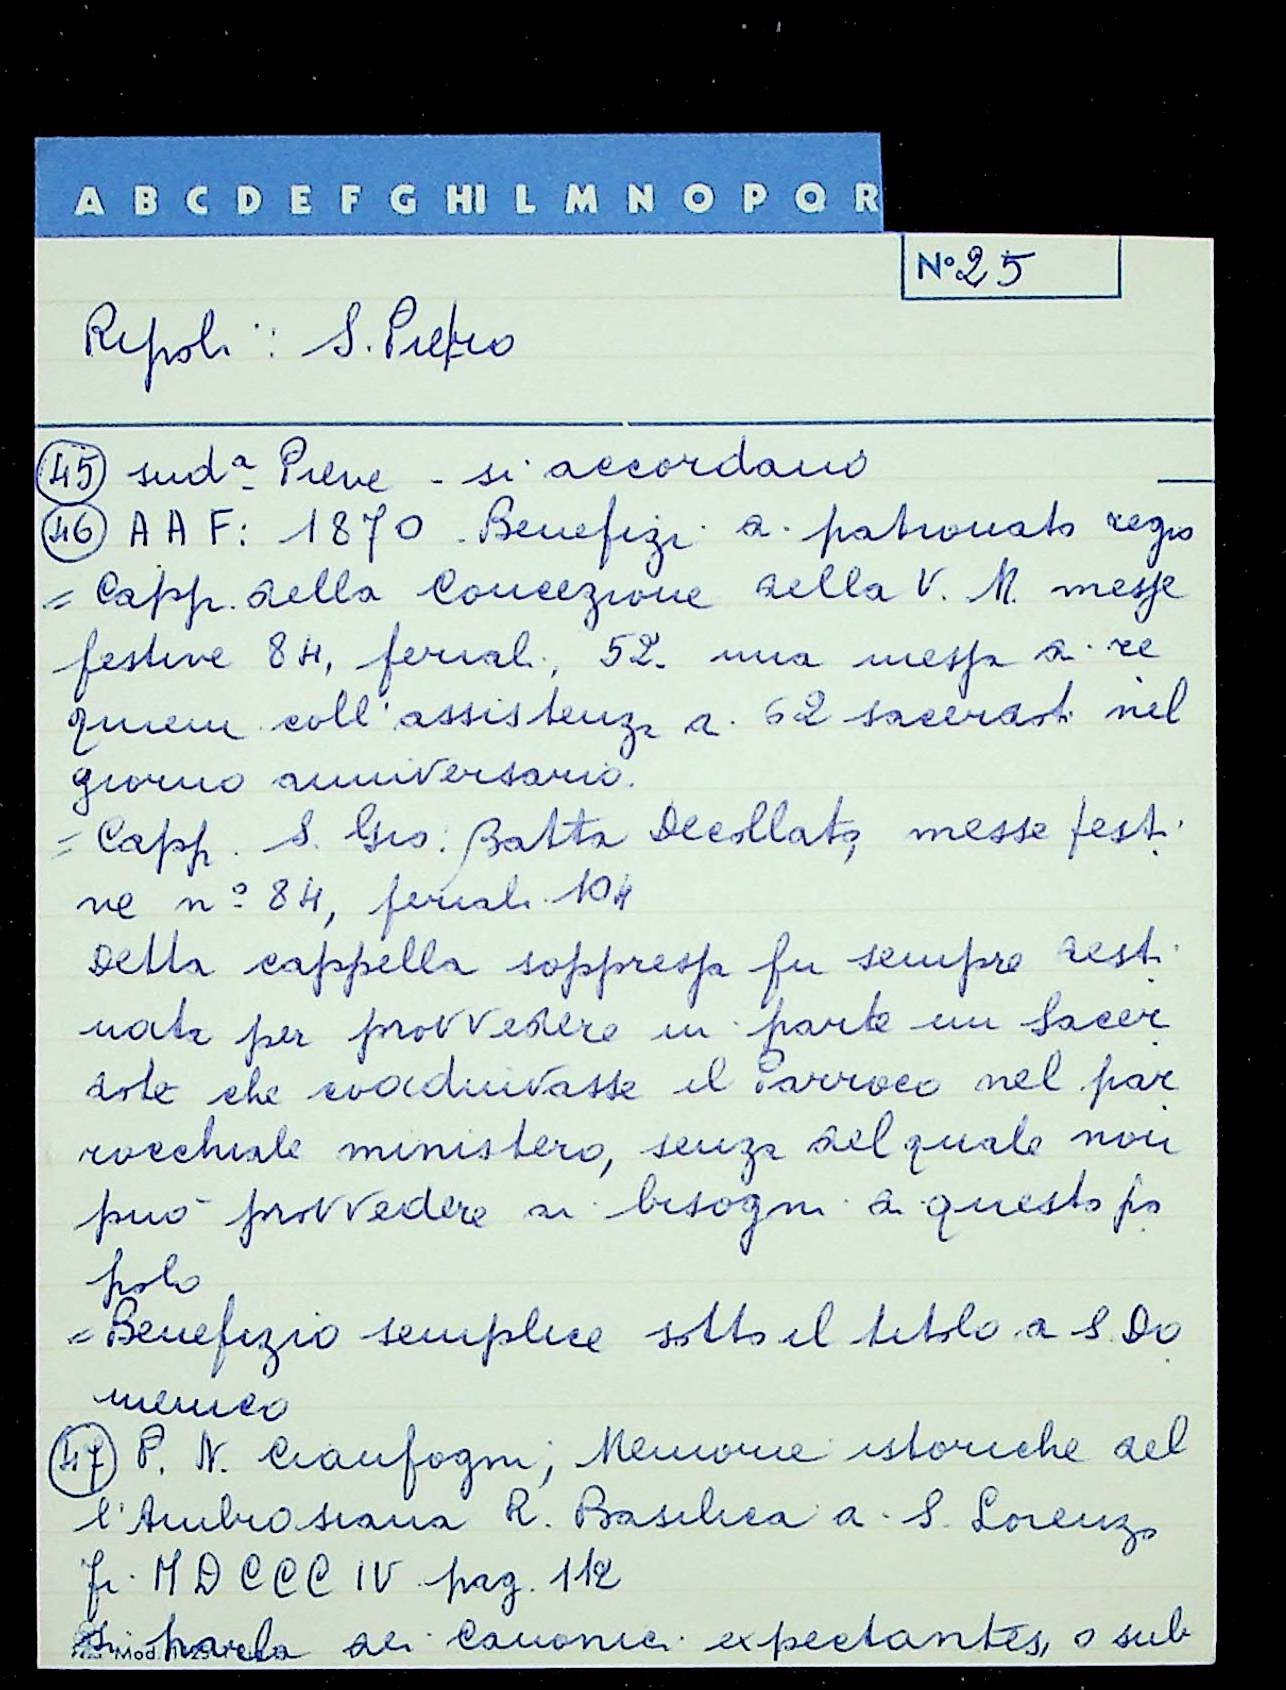 A B C D E F G HI L M N O P Q R
N° 25
Ripoli: S. Pietro
45 sudª Pieve - si accordano
46 A A F: 1870. Benefizi di patronato regio
= Capp. della Concezione della V. M. messe
festive 84, feriali, 52. una messa di re
quiem coll'assistenza di 62 sacerdoti nel
giorno anniversario.
= Capp. S. Gio: Batta Decollato, messe festi
ve n° 84, feriali 104
Detta cappella soppressa fu sempre desti
nata per provvedere in parte un Sacer
dote che coadiuvasse il Parroco nel par
rocchiale ministero, senza del quale non
può provvedere ai bisogni di questo po
polo
= Benefizio semplice sotto il titolo di S. Do
menico
47 P. N. Cianfogni, Memorie istoriche del
l'Ambrosiana R. Basilica di S. Lorenzo
Fi. MDCCCIV pag. 112
Si parla dei Canonici expectantes, o sub
Mod.